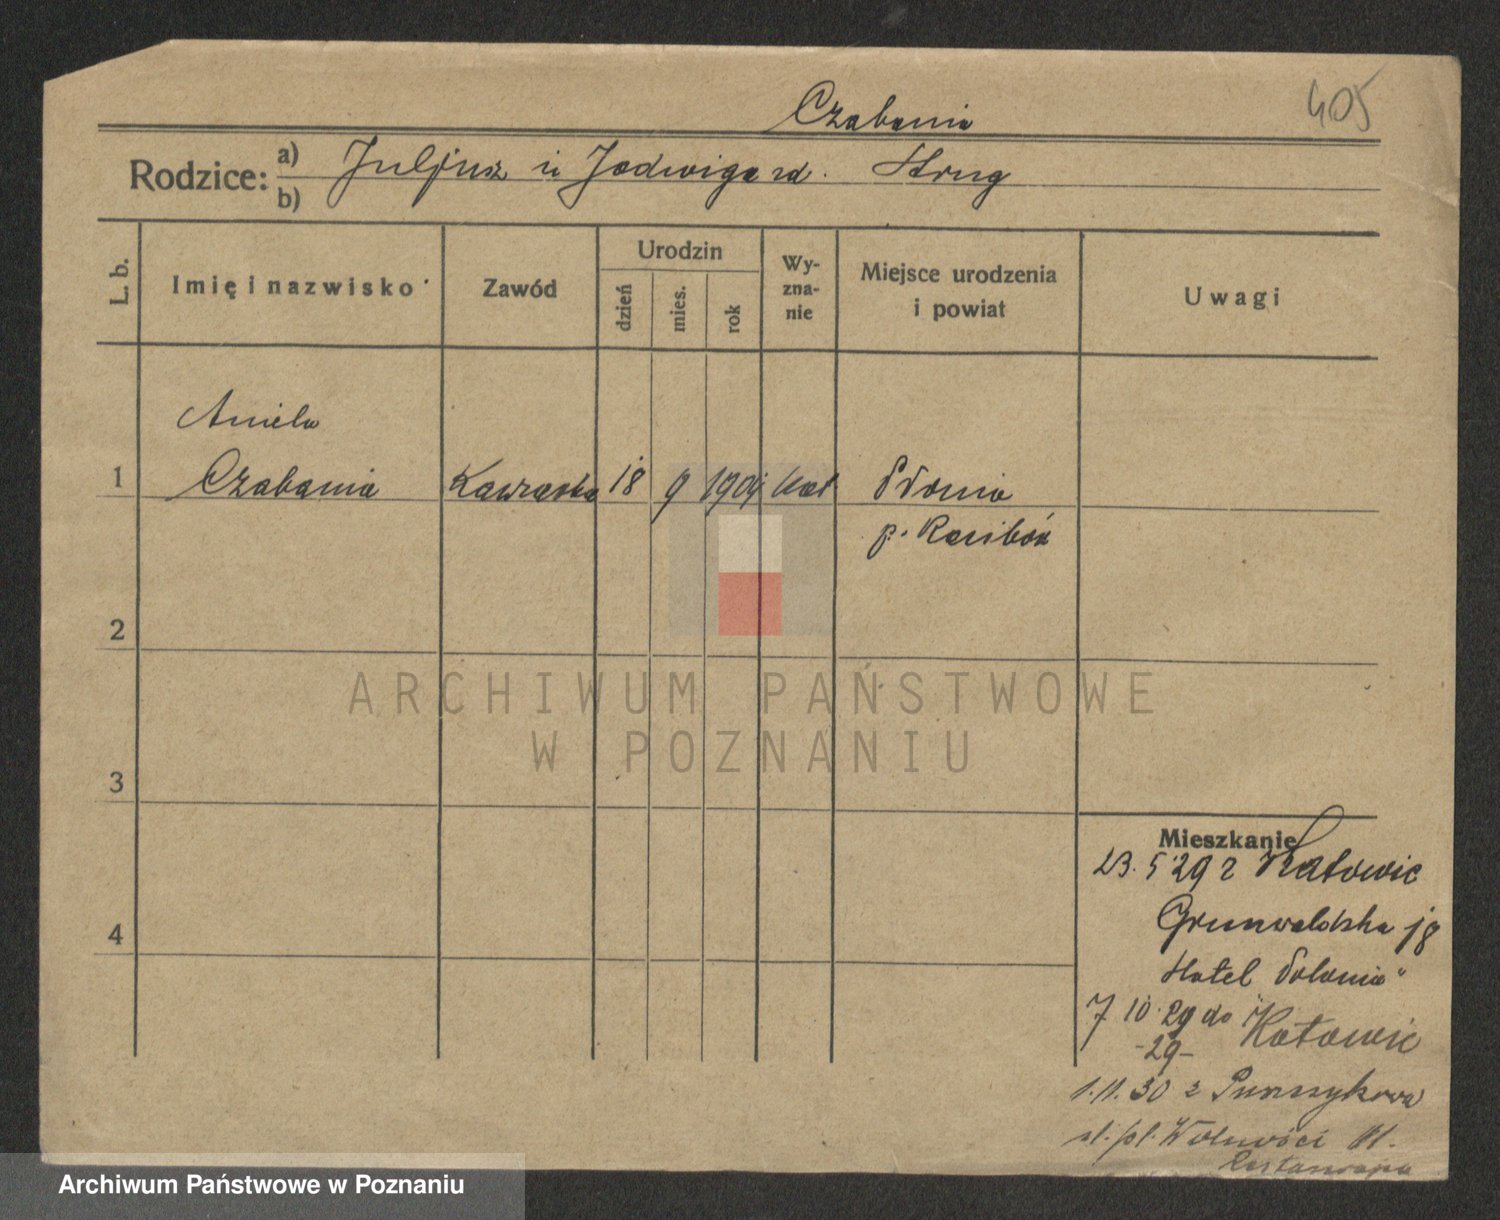 405
Czabania
Rodzice: a) b) Juljusz i Jadwiga zd. Strug
L. b.
Imię i nazwisko
Zawód
Urodzin
dzień
mies.
rok
Wy-
zna-
nie
Miejsce urodzenia
i powiat
Uwagi
Aniela
1 Czabania 18 9 kat
p. Racibór
2
3
4
ARCHIWUM PAŃSTWOWE
W POZNANIU
Mieszkanie
23. 5 29 z Katowic
Grunwaldzka 18
Hotel Polonia"
7 10 29 do Katowic
-29-
1.11.30 z
pl. Wolności
Restauracja
Archiwum Państwowe w Poznaniu